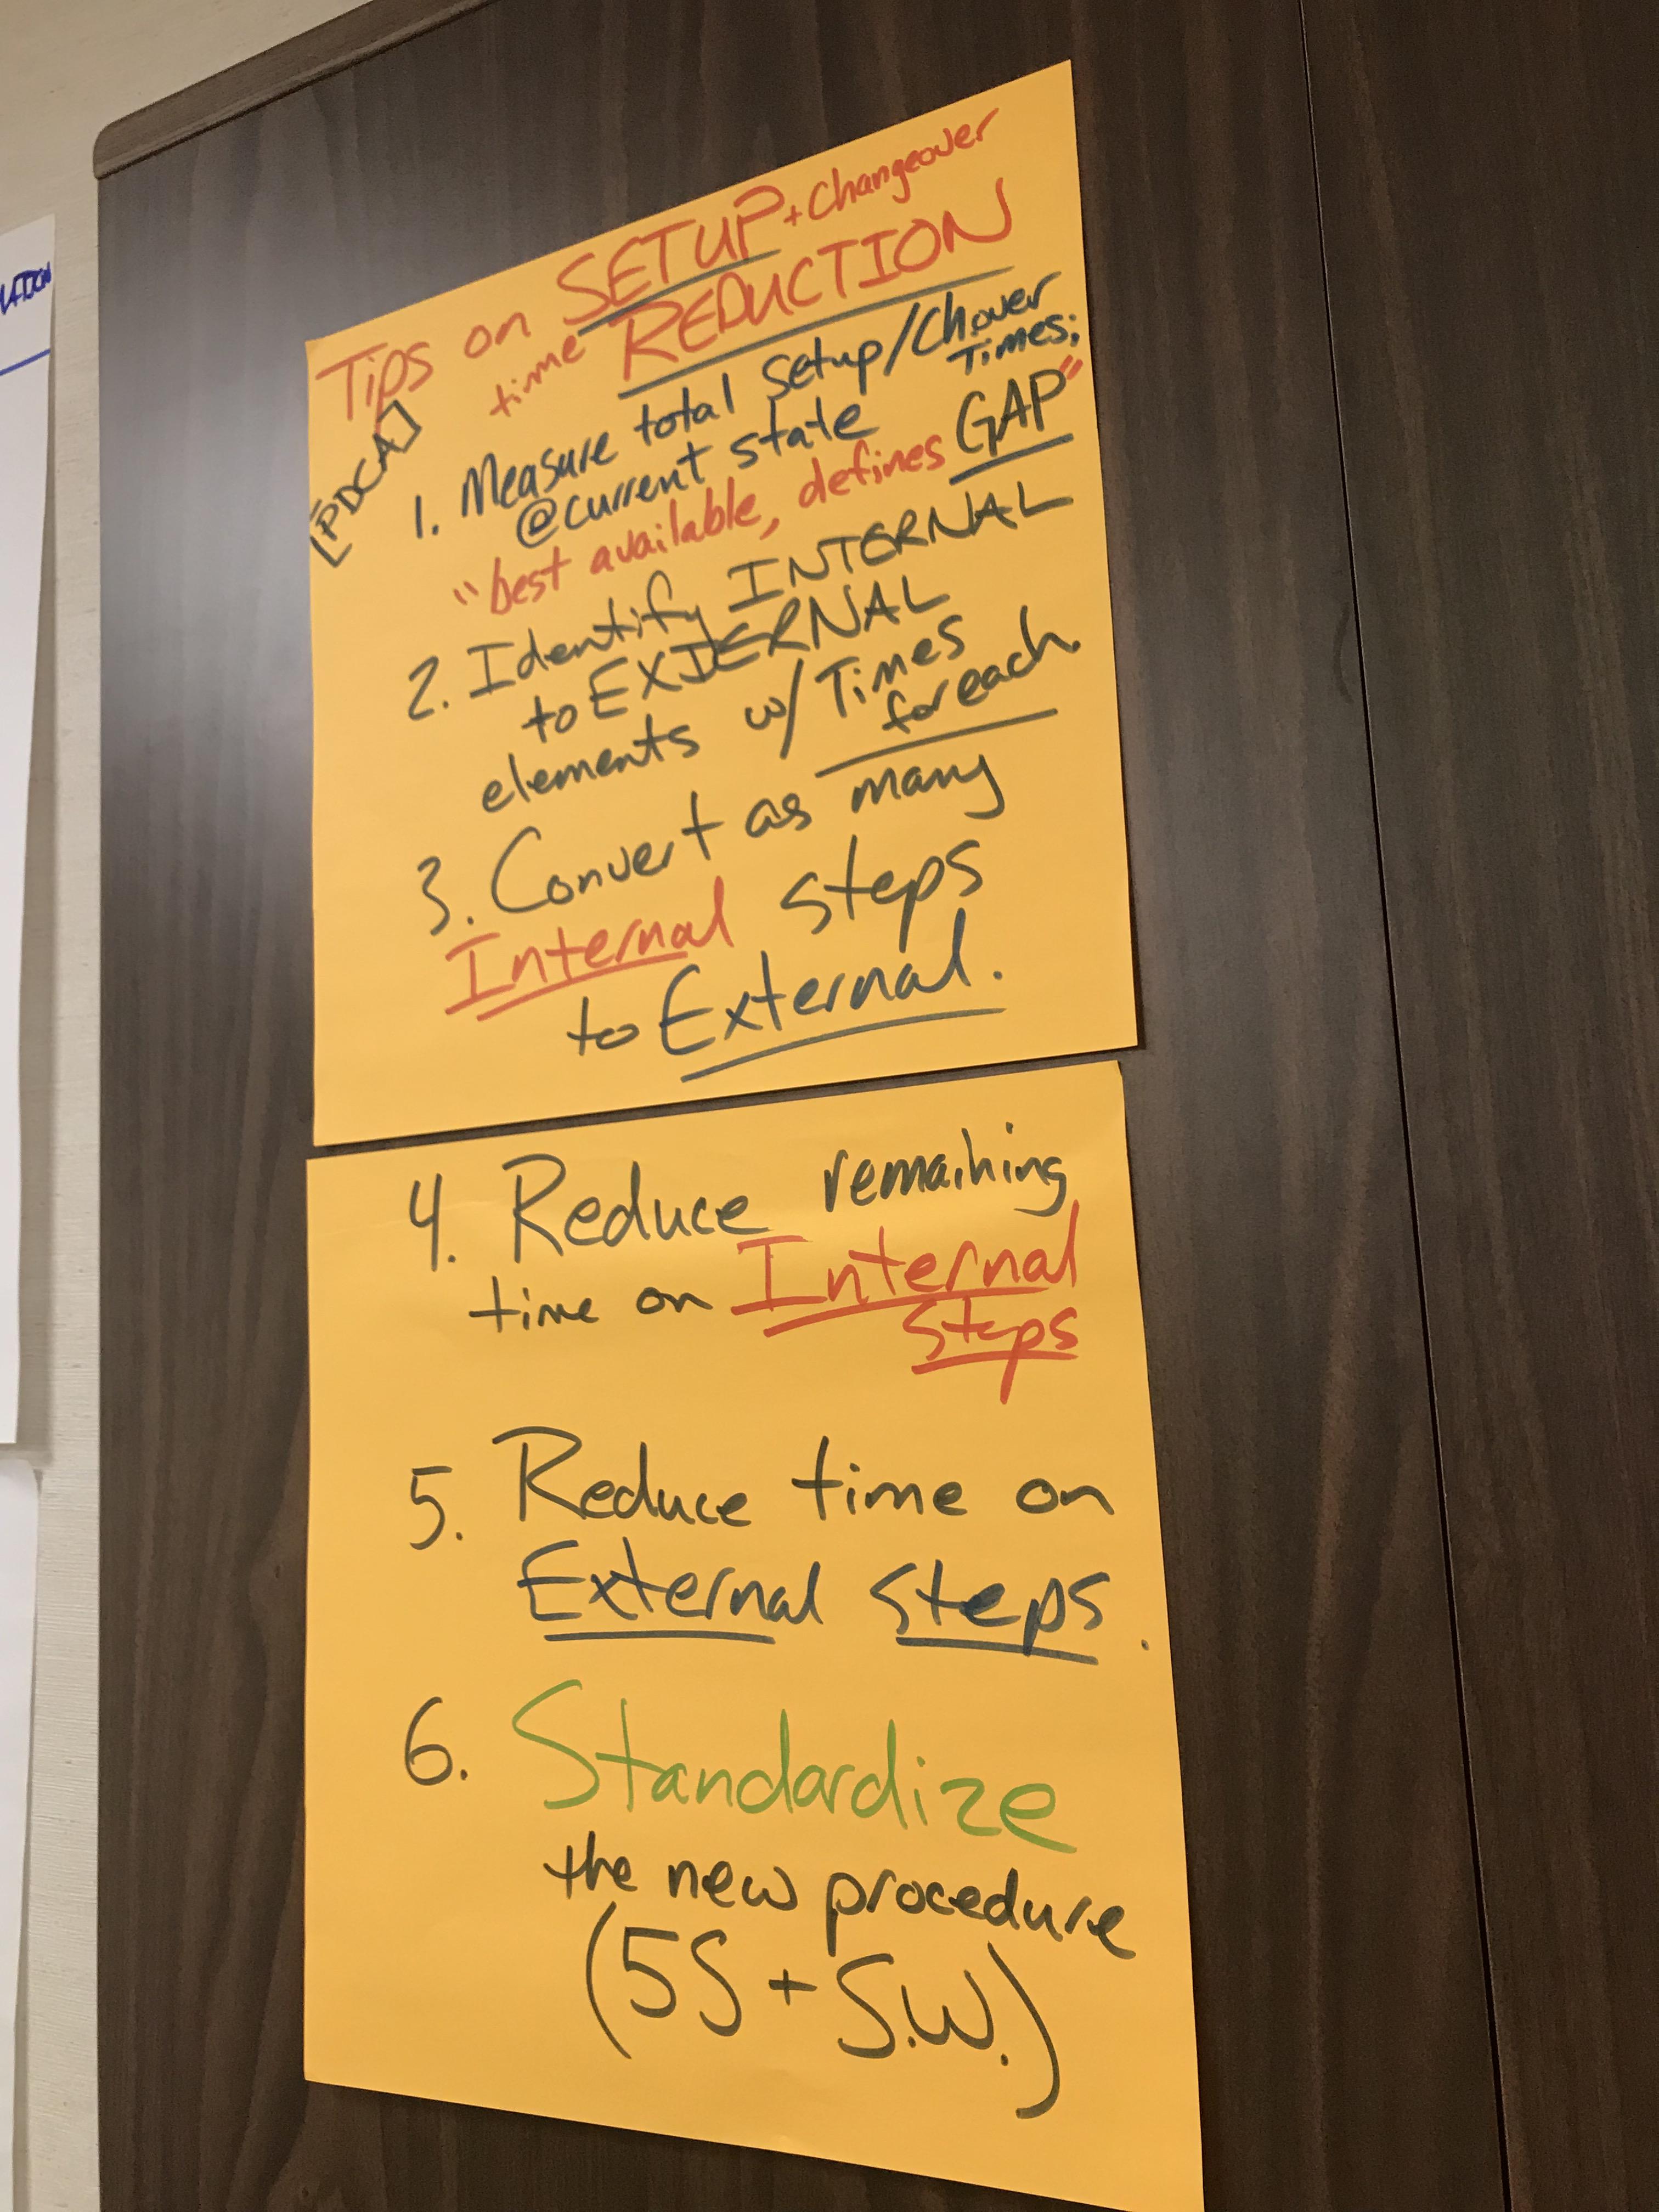 Tips on SETUP + Changeover
time REDUCTION
[PDCA]
1. Measure total Setup/Ch.over
Times;
@current state
"best available, defines GAP"
2. Identify INTERNAL
to EXTERNAL
elements w/ Times
for each.
3. Convert as many
Internal steps
to External.
4. Reduce remaining
time on Internal
steps
5. Reduce time on
External steps.
6. Standardize
the new procedure
(5S + S.W.)